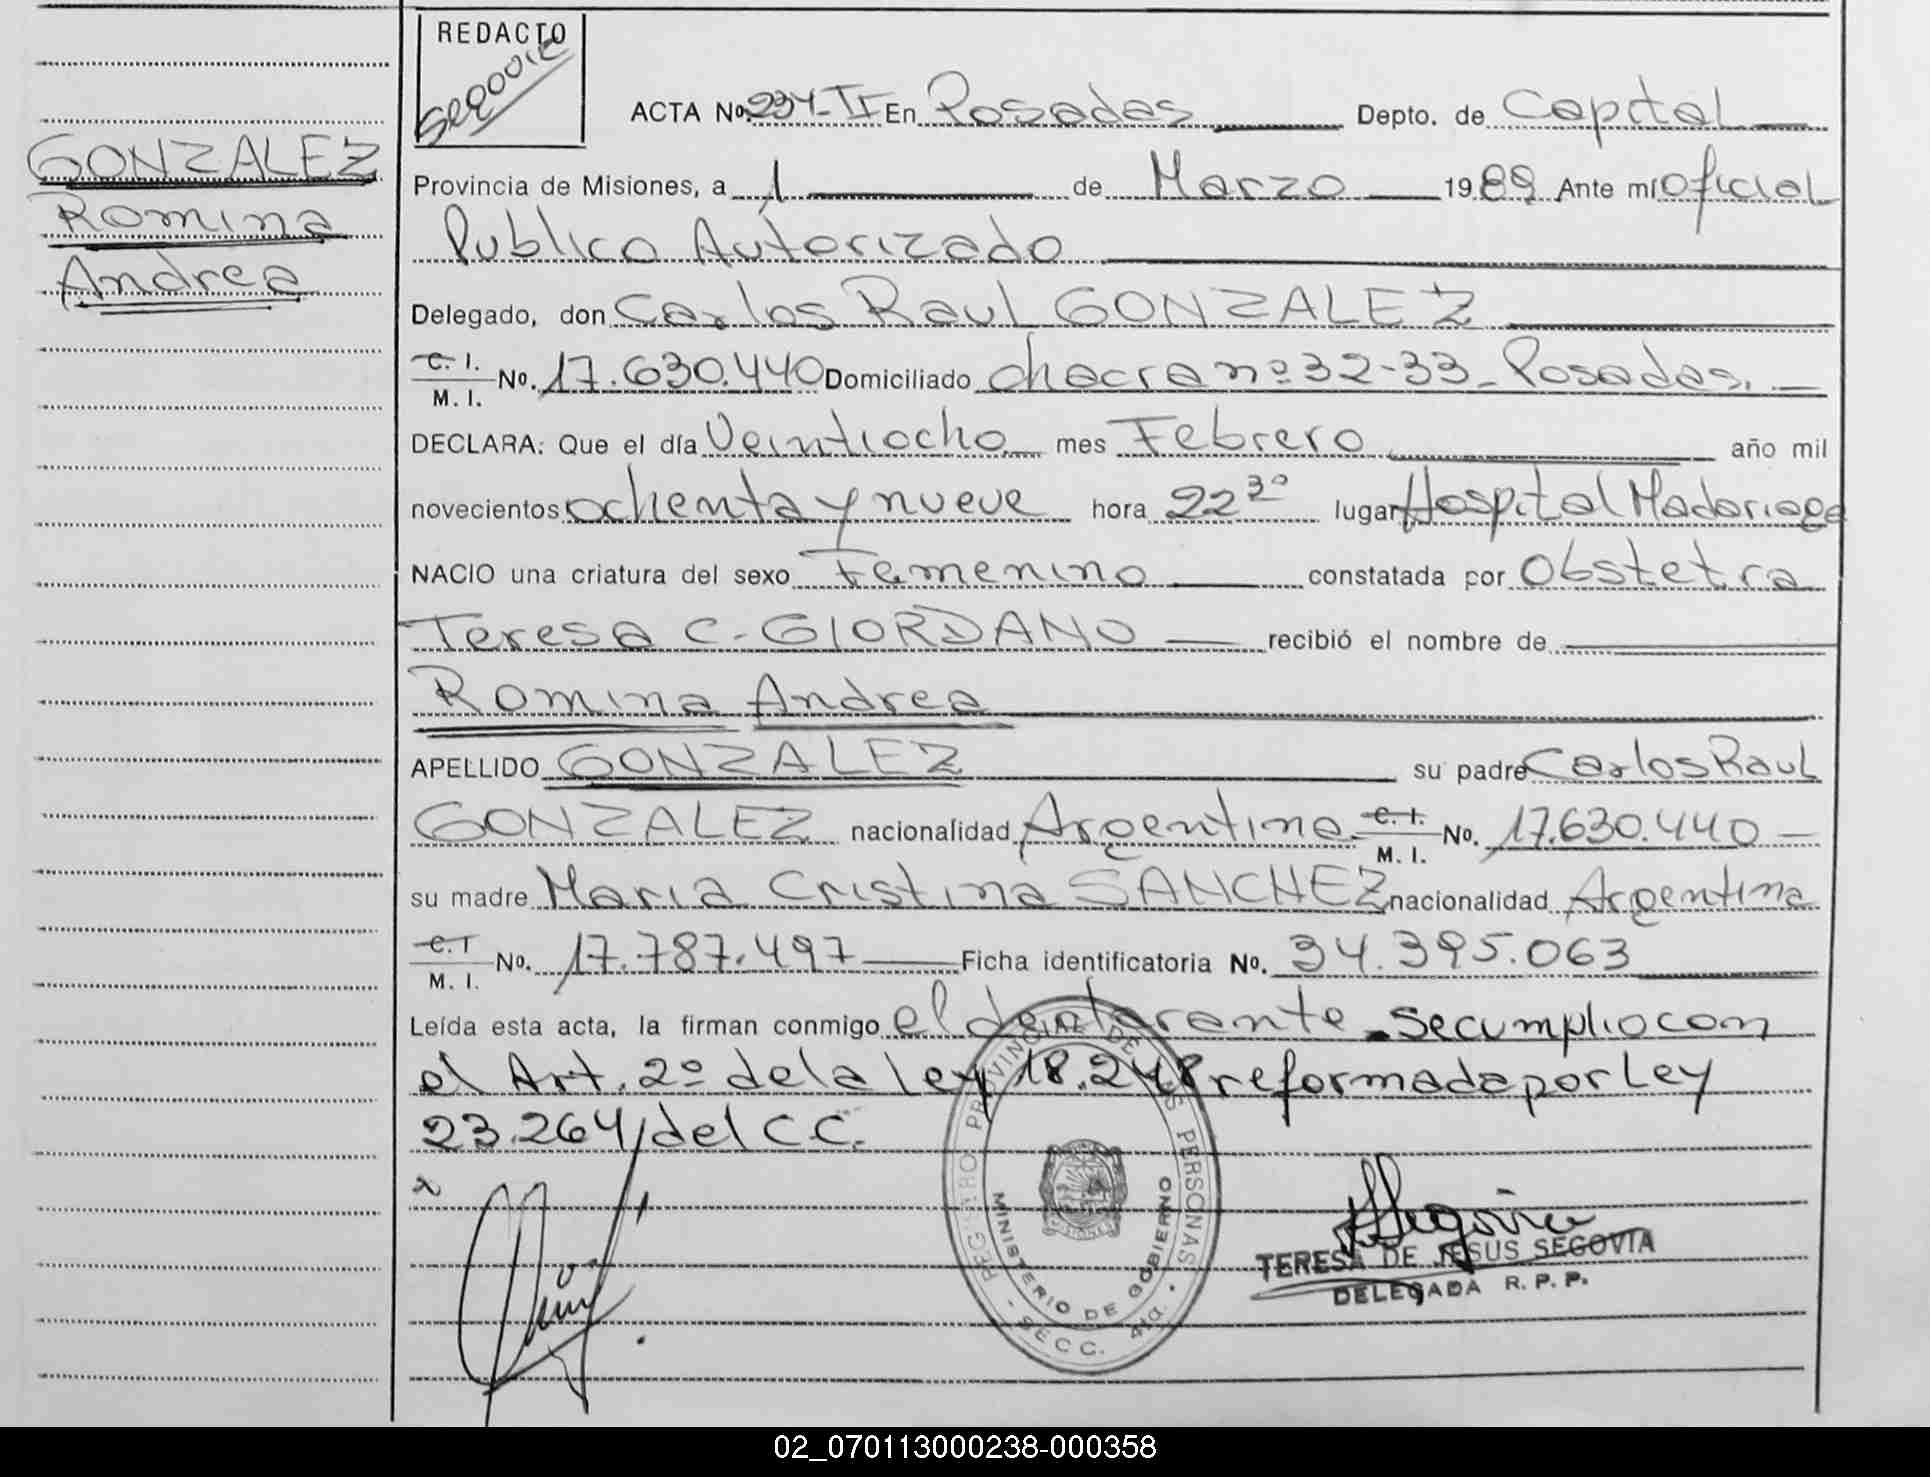 REDACTO
Segovia
GONZALEZ
Romina
Andrea
ACTA No. 234-II En Posadas Depto. de Capital
Provincia de Misiones, a 1 de Marzo 1989 Ante mi Oficial
Publico Autorizado
Delegado, don Carlos Raul GONZALEZ
C. I. / M. I. No. 17.630.440 Domiciliado Chacra nº 32-33- Posadas.
DECLARA: Que el día Veintiocho mes Febrero año mil
novecientos ochenta y nueve hora 22 30 lugar Hospital Madariaga
NACIO una criatura del sexo Femenino constatada por Obstetra
Teresa C. GIORDANO recibió el nombre de
Romina Andrea
APELLIDO GONZALEZ su padre Carlos Raul
GONZALEZ nacionalidad Argentina C. I. / M. I. No. 17.630.440
su madre Maria Cristina SANCHEZ nacionalidad Argentina
C. I / M. I. No. 17.787.497 Ficha identificatoria No. 34.395.063
Leída esta acta, la firman conmigo el declarante. Se cumplio con
el Art. 2º de la Ley 18.248 reformada por Ley
23.264/del C.C.
x
REGISTRO PROVINCIAL DE LAS PERSONAS
MINISTERIO DE GOBIERNO
- SECC. 4ta. -
Segovia
TERESA DE JESUS SEGOVIA
DELEGADA R. P. P.
02_070113000238-000358